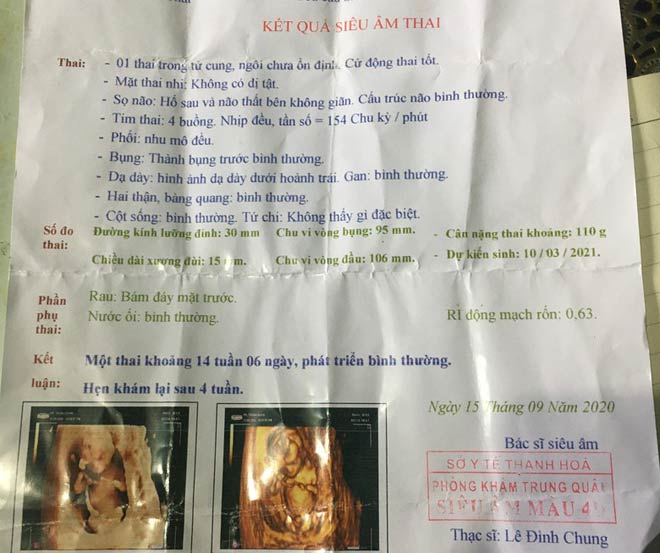 KẾT QUẢ SIÊU ÂM THAI
Thai: - 01 thai trong tử cung, ngôi chưa ổn định. Cử động thai tốt.
- Mặt thai nhi: Không có dị tật.
- Sọ não: Hố sau và não thất bên không giãn. Cấu trúc não bình thường.
- Tim thai: 4 buồng. Nhịp đều, tần số = 154 Chu kỳ / phút
- Phổi: nhu mô đều.
- Bụng: Thành bụng trước bình thường.
- Dạ dày: hình ảnh dạ dày dưới hoành trái. Gan: bình thường.
- Hai thận, bàng quang: bình thường.
- Cột sống: bình thường. Tứ chi: Không thấy gì đặc biệt.
Số đo thai:
Đường kính lưỡng đỉnh: 30 mm Chu vi vòng bụng: 95 mm. - Cân nặng thai khoảng: 110 g
Chiều dài xương đùi: 15 mm. Chu vi vòng đầu: 106 mm. - Dự kiến sinh: 10 / 03 / 2021.
Phần phụ thai:
Rau: Bám đáy mặt trước.
Nước ối: bình thường. RI động mạch rốn: 0,63.
Kết luận:
Một thai khoảng 14 tuần 06 ngày, phát triển bình thường.
Hẹn khám lại sau 4 tuần.
Ngày 15 Tháng 09 Năm 2020
Bác sĩ siêu âm
SỞ Y TẾ THANH HOÁ
PHÒNG KHÁM TRUNG QUÂN
SIÊU ÂM MÀU 4D
Thạc sĩ: Lê Đình Chung